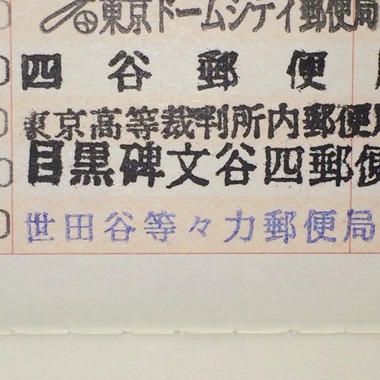 東京ドームシティ郵便局
四谷郵便
東京高等裁判所内郵便
目黒碑文谷四郵便
世田谷等々力郵便局